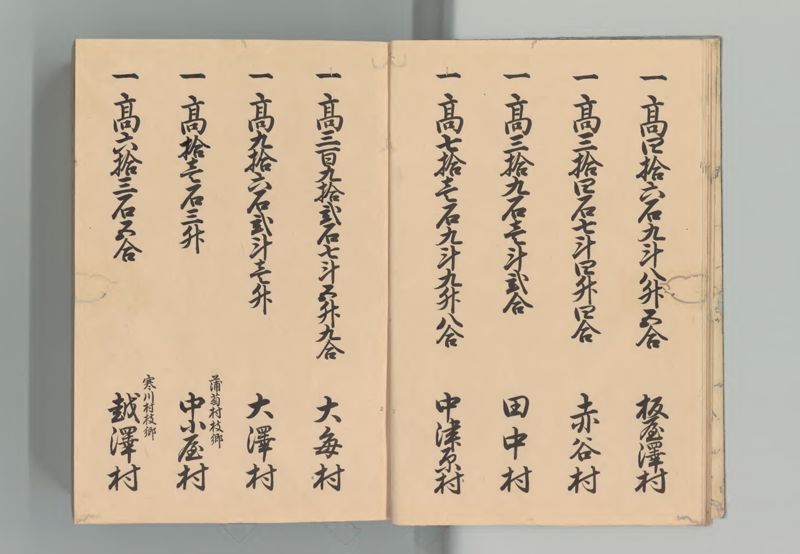 一 高四拾六石九斗八升五合 板屋澤村
一 高三拾四石七斗四升四合 赤谷村
一 高三拾九石壱斗弐合 田中村
一 高七拾壱石九斗九升八合 中津原村
一 高三百九拾弐石七斗五升九合 大毎村
一 高九拾六石弐斗壱升 大澤村
蒲萄村枝郷
一 高拾壱石三升 中小屋村
寒川村枝郷
一 高六拾三石五合 越澤村